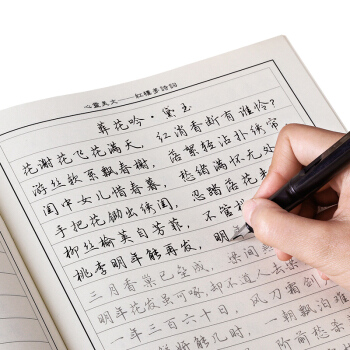 心灵美文——红楼梦诗词
葬花吟·黛玉
花谢花飞花满天，红消香断有谁怜？
游丝软系飘春榭，落絮轻沾扑绣帘
闺中女儿惜春暮，愁绪满怀无处
手把花锄出绣闺，忍踏落花
柳丝榆荚自芳菲，不管
桃李明年能再发，明
三月香巢已垒成，梁间
明年花发虽可啄，却不道人去
一年三百六十日，风刀霜剑
明媚鲜妍能几时，一朝飘泊难
花开易见落难寻，阶前愁